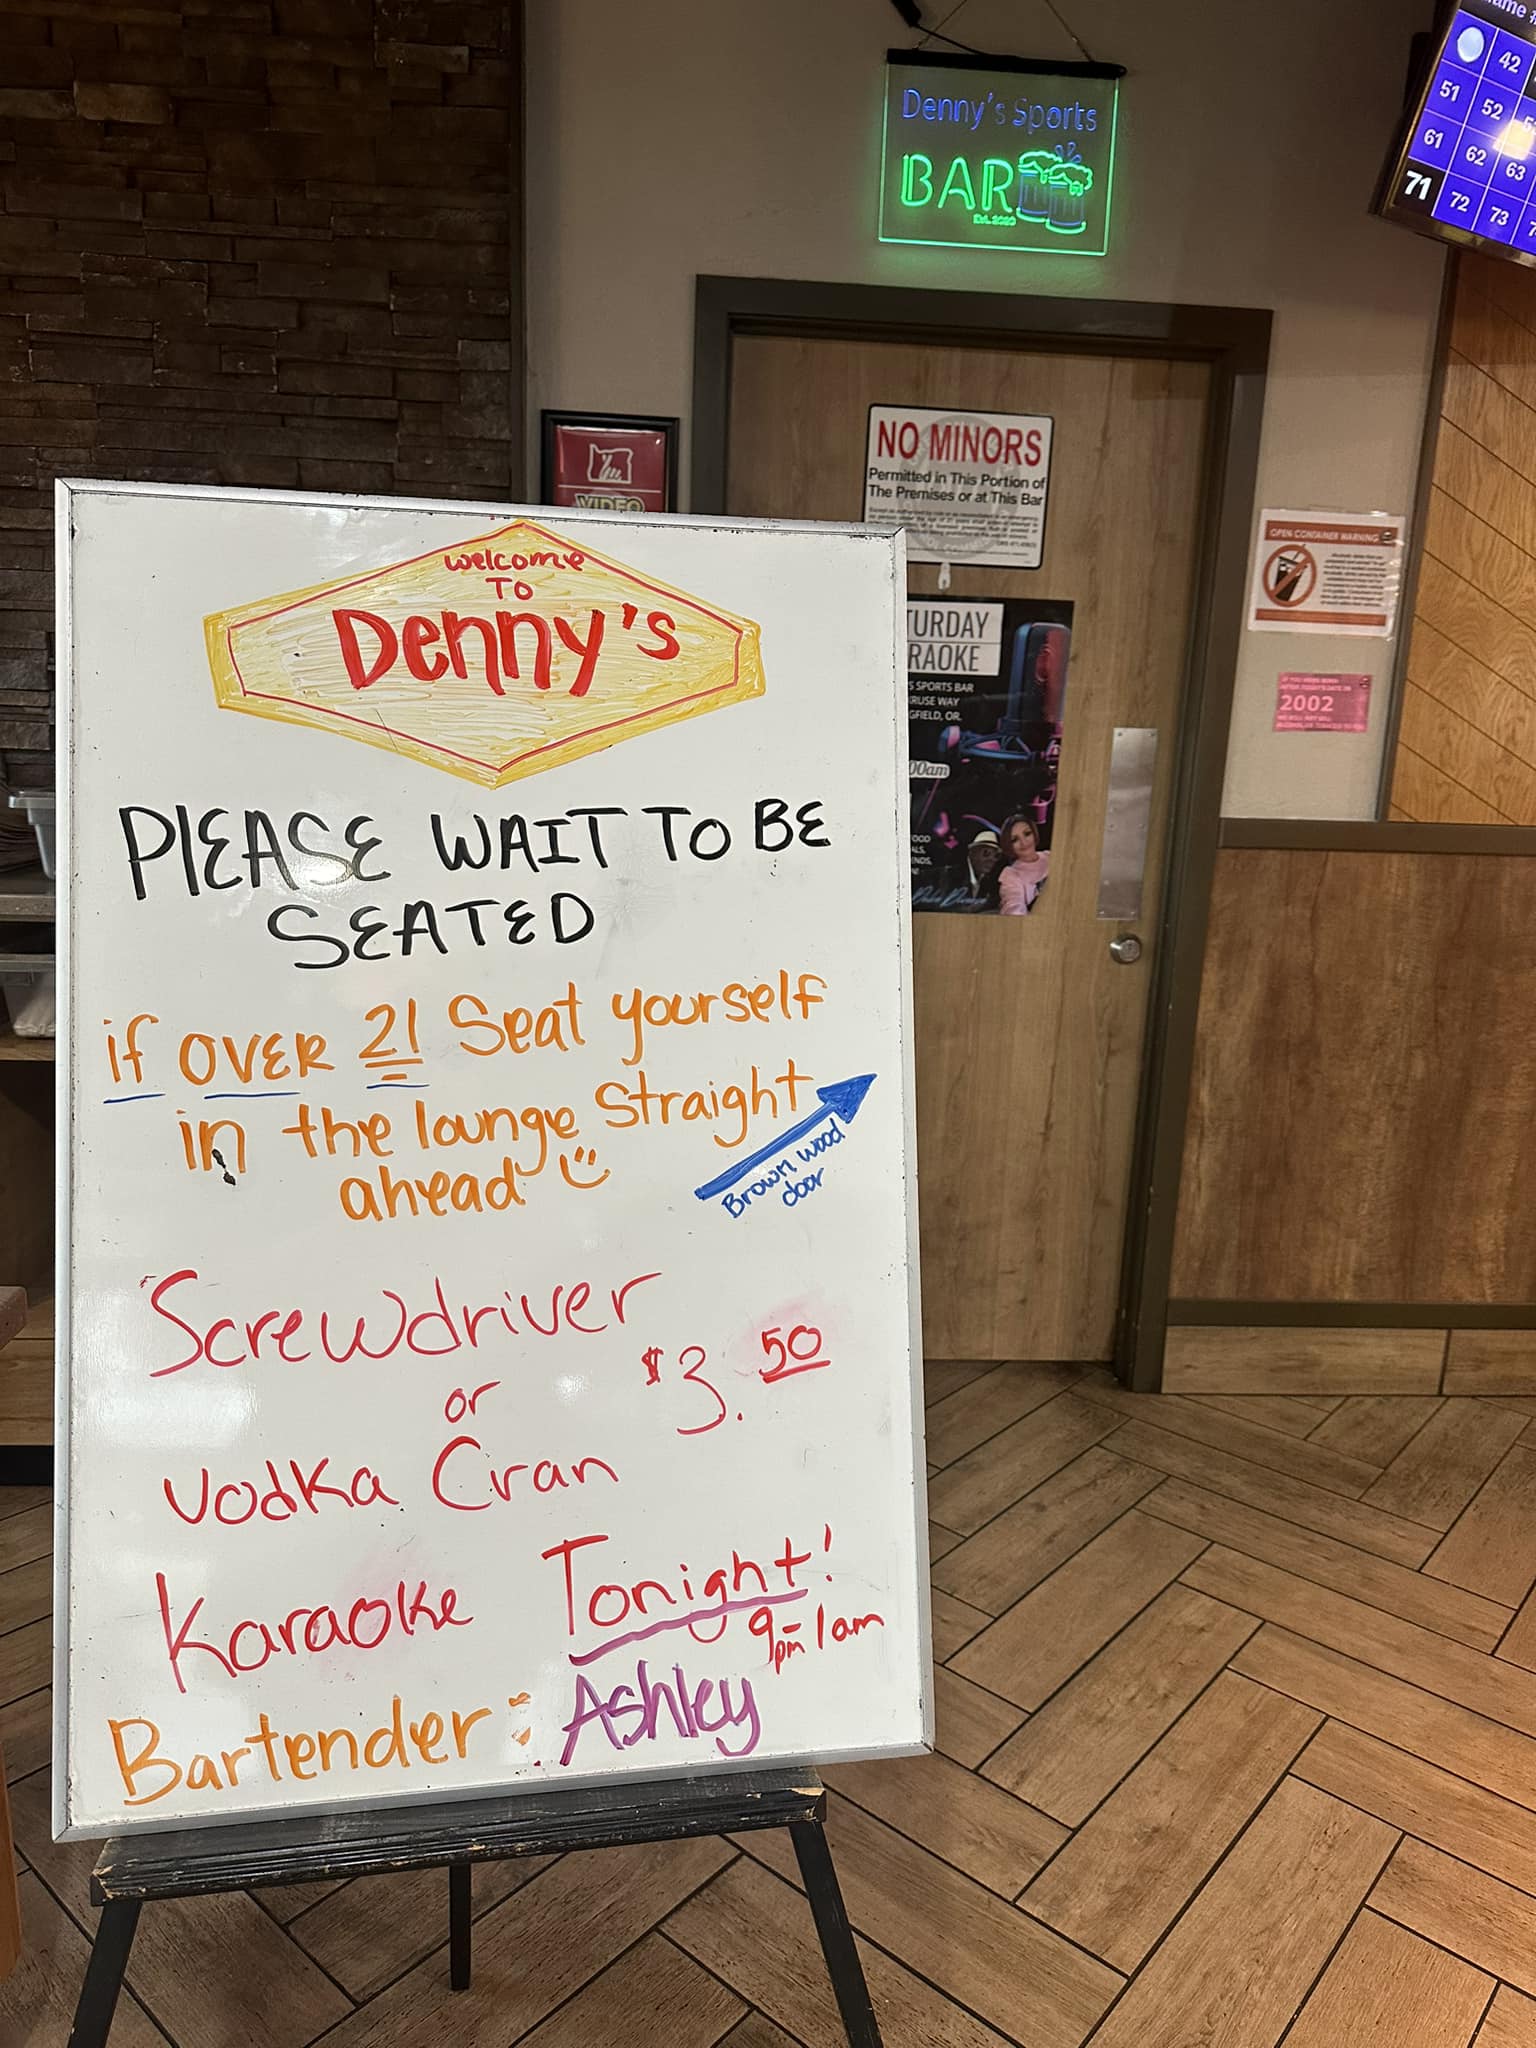 Denny's Sports
BAR
Est. 2020
ame
42
51
52
61
62
63
71
72
73
NO MINORS
Permitted in This Portion of
The Premises or at This Bar
VIDEO
OPEN CONTAINER WARNING
TURDAY
RAOKE
S SPORTS BAR
KRUSE WAY
GFIELD, OR.
00am
IF YOU WERE BORN
AFTER TODAY'S DATE IN
2002
WE WILL NOT SELL
welcome
TO
Denny's
PLEASE WAIT TO BE
SEATED
if OVER 21 Seat yourself
in the lounge Straight
ahead
Brown wood
door
Screwdriver
or
$3.50
Vodka Cran
Karaoke Tonight!
9pm-1am
Bartender: Ashley